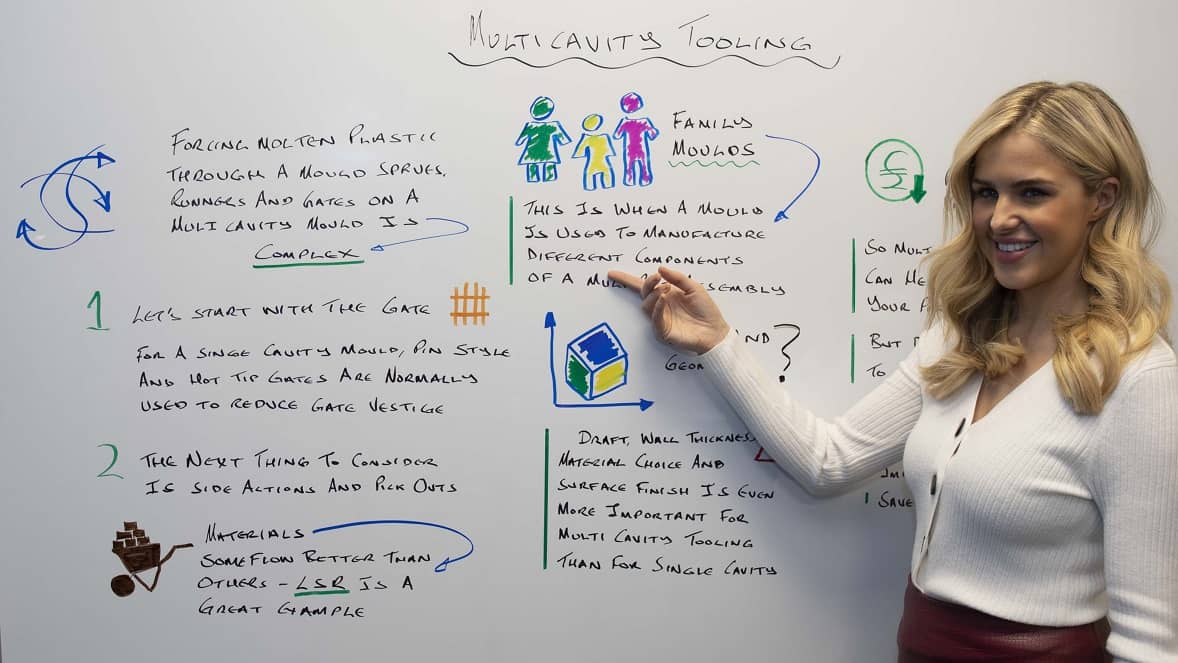 MULTICAVITY TOOLING
FORCING MOLTEN PLASTIC
THROUGH A MOULD SPRUES,
RUNNERS AND GATES ON A
MULTI CAVITY MOULD IS
COMPLEX
1 LET'S START WITH THE GATE
FOR A SINGE CAVITY MOULD, PIN STYLE
AND HOT TIP GATES ARE NORMALLY
USED TO REDUCE GATE VESTIGE
2 THE NEXT THING TO CONSIDER
IS SIDE ACTIONS AND PICK OUTS
MATERIALS
SOME FLOW BETTER THAN
OTHERS - LSR IS A
GREAT EXAMPLE
FAMILY
MOULDS
THIS IS WHEN A MOULD
IS USED TO MANUFACTURE
DIFFERENT COMPONENTS
OF A
?
DRAFT, WALL THICKNESS
MATERIAL CHOICE AND
SURFACE FINISH IS EVEN
MORE IMPORTANT FOR
MULTI CAVITY TOOLING
THAN FOR SINGLE CAVITY
SO
CAN
YOUR
BUT
TO
SAVE